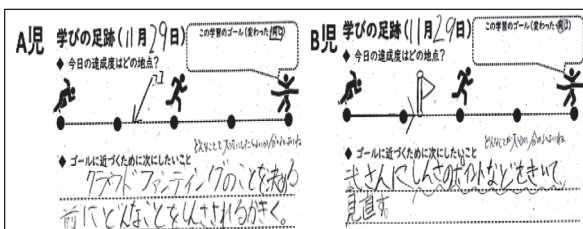 A児
学びの足跡(11月29日)
この学習のゴール(変わった
◆ 今日の達成度はどの地点?
ココ
◆ ゴールに近づくために次にしたいこと
クラウドファンディングのことを決める
前にどんなことをしんさされるかきく。
B児
学びの足跡(11月29日)
この学習のゴール(変わった
◆ 今日の達成度はどの地点?
◆ ゴールに近づくために次にしたいこと
さんにしんさのポイントなどをきいて
見直す。